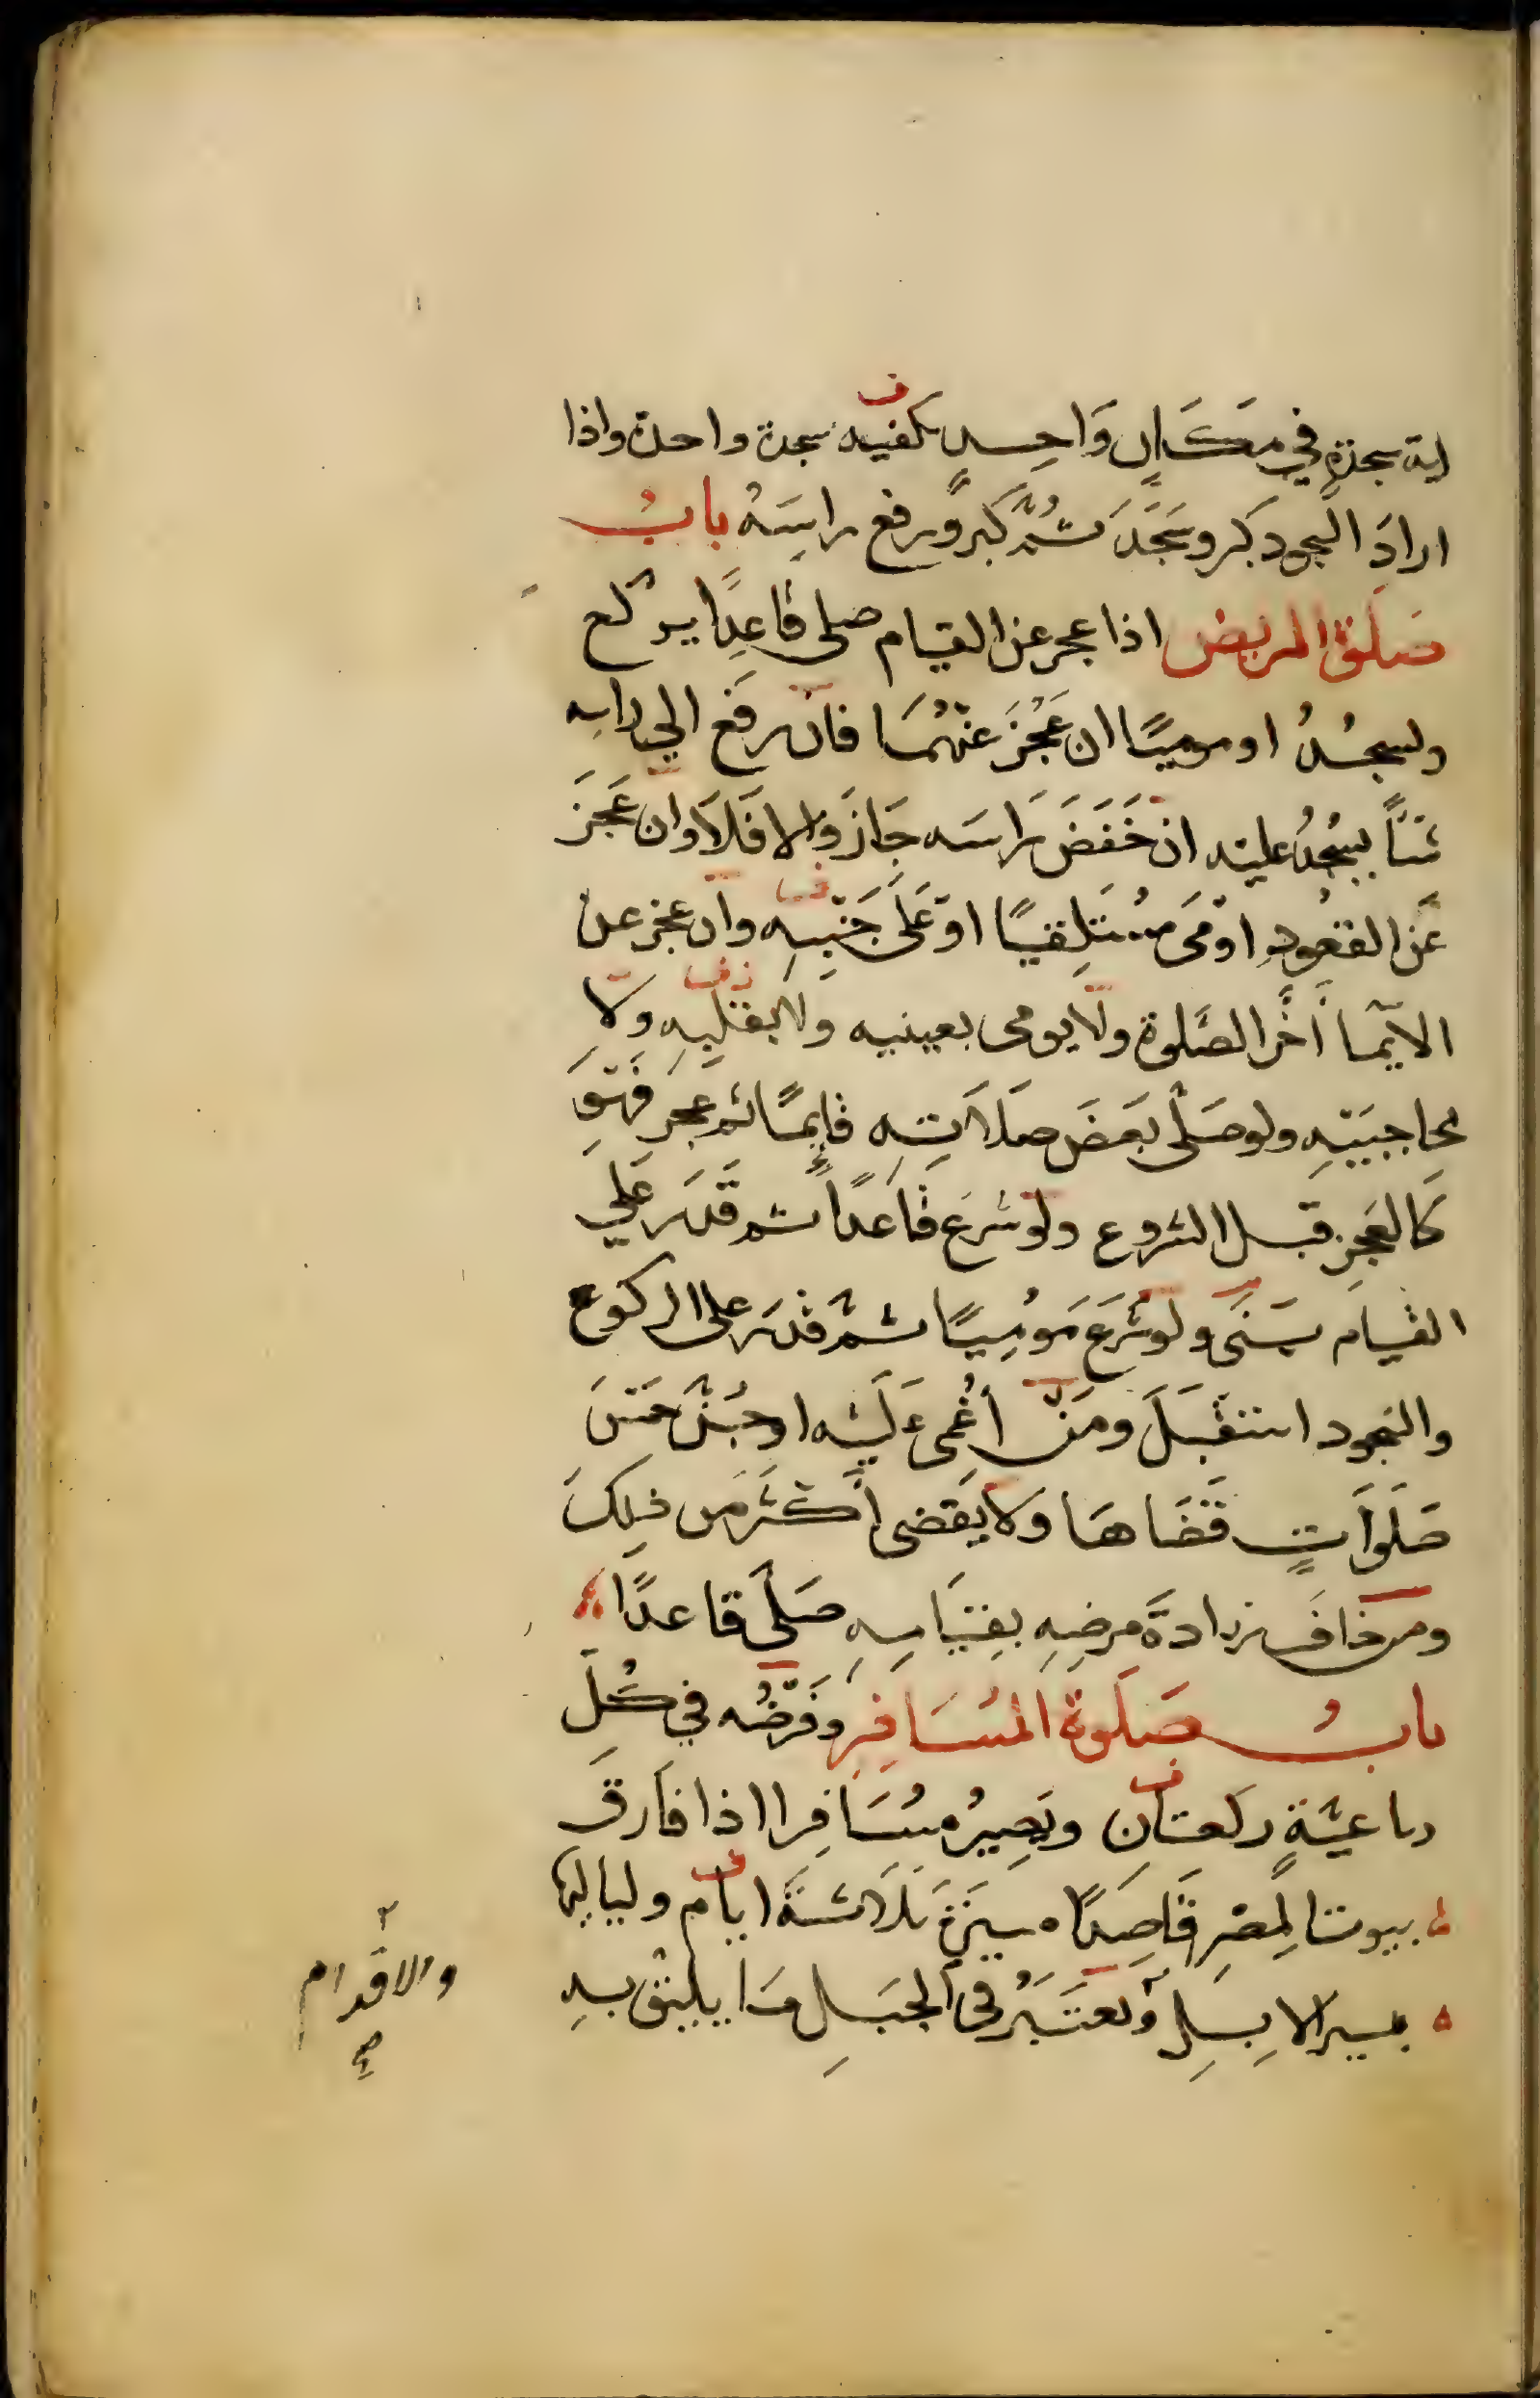 اية سجدة في مَكَانٍ وَاحِدٍ تكفيه سجدة واحدة واذا
ارادَ السجود كبر وسَجَدَ ثُمَّ كبر ورفع راسَهُ بابُ
صَلوة المريض اذا عجز عن القيام صلى قاعِدًا يركع
ويسجُدُ او موميًا ان عَجَزَ عَنْهُمَا فان رفَع الى راسه
شَيْـًٔا يسْجُدُ عليه ان خَفَضَ رَاسَه جَازَ والا فَلَا وان عَجَزَ
عَن القعُودِ اوْمَى مُسْتَلِقيًا اوْ عَلَى جَنْبِهِ وان عجز عن
الايمَا أخَّر الصَّلوة ولا يومى بعينيه ولا بقلبِهِ ولا
بحاجبَيْهِ ولو صَلى بَعضَ صَلَاتِهِ قايمًا ثم عجز فَهوَ
كَالعَجزِ قبل الشروع ولو شرَعَ قاعدًا ثم قَدَر على
القيام بَنَى ولو شَرَعَ مَوُمِيًا ثم قدر على الركوع
والسجود استقبَلَ ومَن أُغْمى عَلَيْه او جُنَّ خمْسَ
صَلَوَاتٍ قَضَاهَا ولا يَقضى أكثَرَ من ذلِكَ
ومن خافَ زيادَةَ مرضِهِ بقيَامِهِ صَلى قاعدًا
بابُ صَلَوة المُسَافِرِ وفَرْضُه في كُلّ
رباعيَّةٍ ركعتان ويَصِيرُ مسُسَافِرا اذا فارق
بيوت المِصْرِ قَاصِدًا مسيرَةَ ثَلَاثَةَ ايام ولياليها
بسير الابِلِ وَيعتَبَرُ في الجبَلِ مَا يليْق بهِ
والاقدام
صح